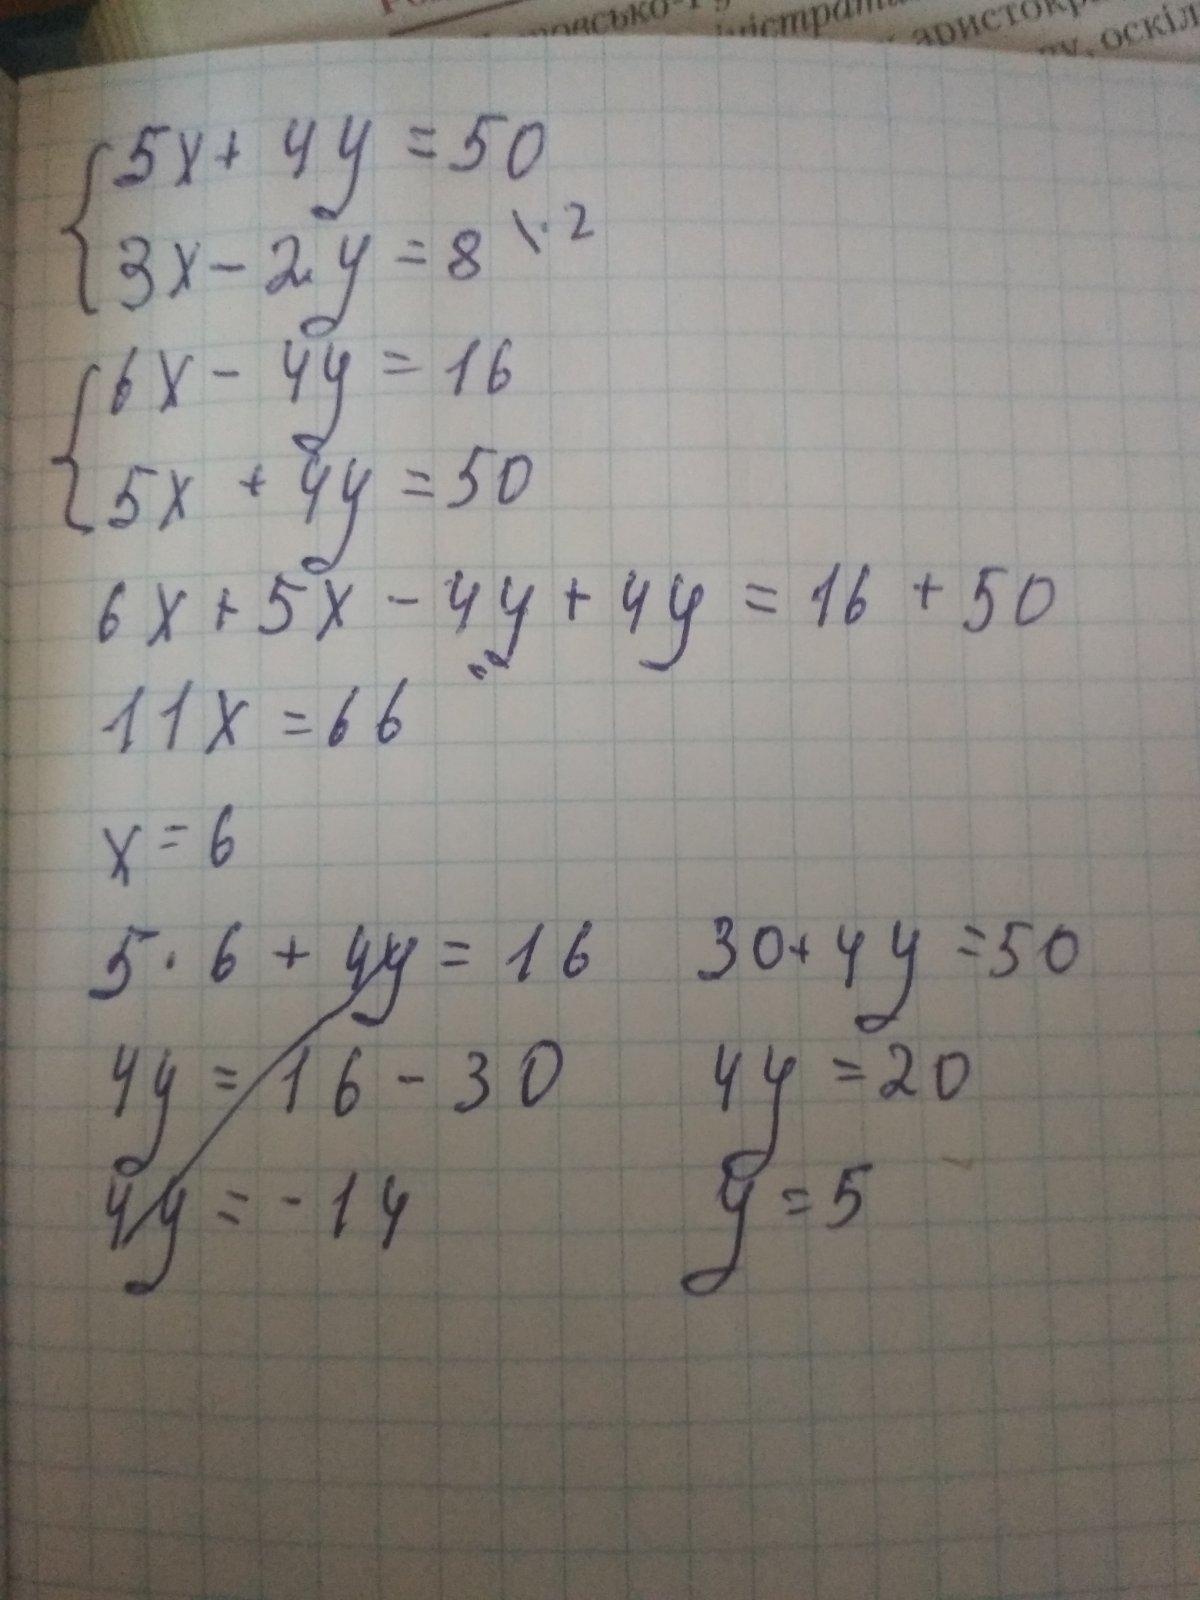 іністрати
аристокра
оскіл
5x + 4y = 50
3x - 2y = 8 \· 2
6x - 4y = 16
5x + 4y = 50
6x + 5x - 4y + 4y = 16 + 50
11x = 66
x = 6
5 · 6 + 4y = 16
4y = 16 - 30
4y = -14
30 + 4y = 50
4y = 20
y = 5